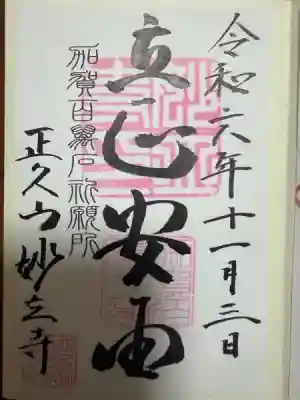 令和六年十一月三日
立正安国
加賀百萬石祈願所
正久山妙立寺